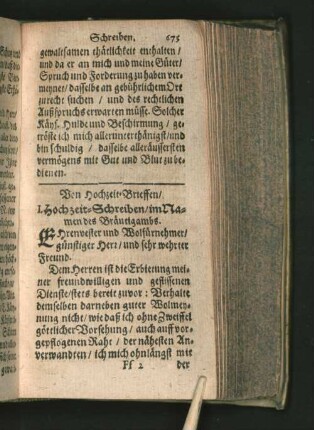 Schreiben. 675
gewaltsamen thätlichkeit enthalten /
und da er an mich und meine Güter /
Spruch und Forderung zu haben ver-
meynet / dasselbe an gebührlichem Ort
zurecht suchen / und des rechtlichen
Außspruchs erwarten müsse. Solcher
Käys. Hulde und Beschirmung / ge-
tröste ich mich allerunterthänigst / und
bin schuldig / dasselbe alleräussersten
vermögens mit Gut und Blut zu be-
dienen.
Von Hochzeit-Brieffen /
1. Hochzeit-Schreiben / im Na-
men des Bräutigambs.
Ehrenvester und Wolfürnehmer /
günstiger Herr / und sehr wehrter
Freund.
Dem Herren ist die Erbietung mei-
ner freundwilligen und geflissenen
Dienste / stets bereit zuvor : Verhalte
demselben darneben guter Wolmey-
nung nicht / wie daß ich ohne Zweiffel
göttlicher Vorsehung / auch auff vor-
gepflogenen Raht / der nähesten An-
verwandten / ich mich ohnlängst mit
Ff 2 der